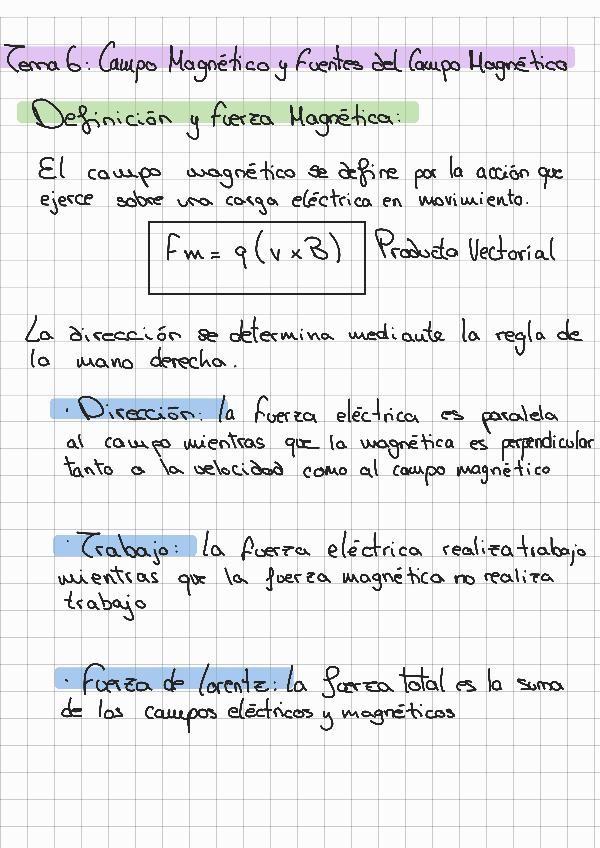 Tema 6: Campo Magnético y Fuentes del Campo Magnético
Definición y fuerza Magnética:
El campo magnético se define por la acción que
ejerce sobre una carga eléctrica en movimiento.
Fm = q (v x B) Producto Vectorial
La dirección se determina mediante la regla de
la mano derecha.
· Dirección: la fuerza eléctrica es paralela
al campo mientras que la magnética es perpendicular
tanto a la velocidad como al campo magnético
· Trabajo: la fuerza eléctrica realiza trabajo
mientras que la fuerza magnética no realiza
trabajo
· Fuerza de Lorentz: la fuerza total es la suma
de los campos eléctricos y magnéticos